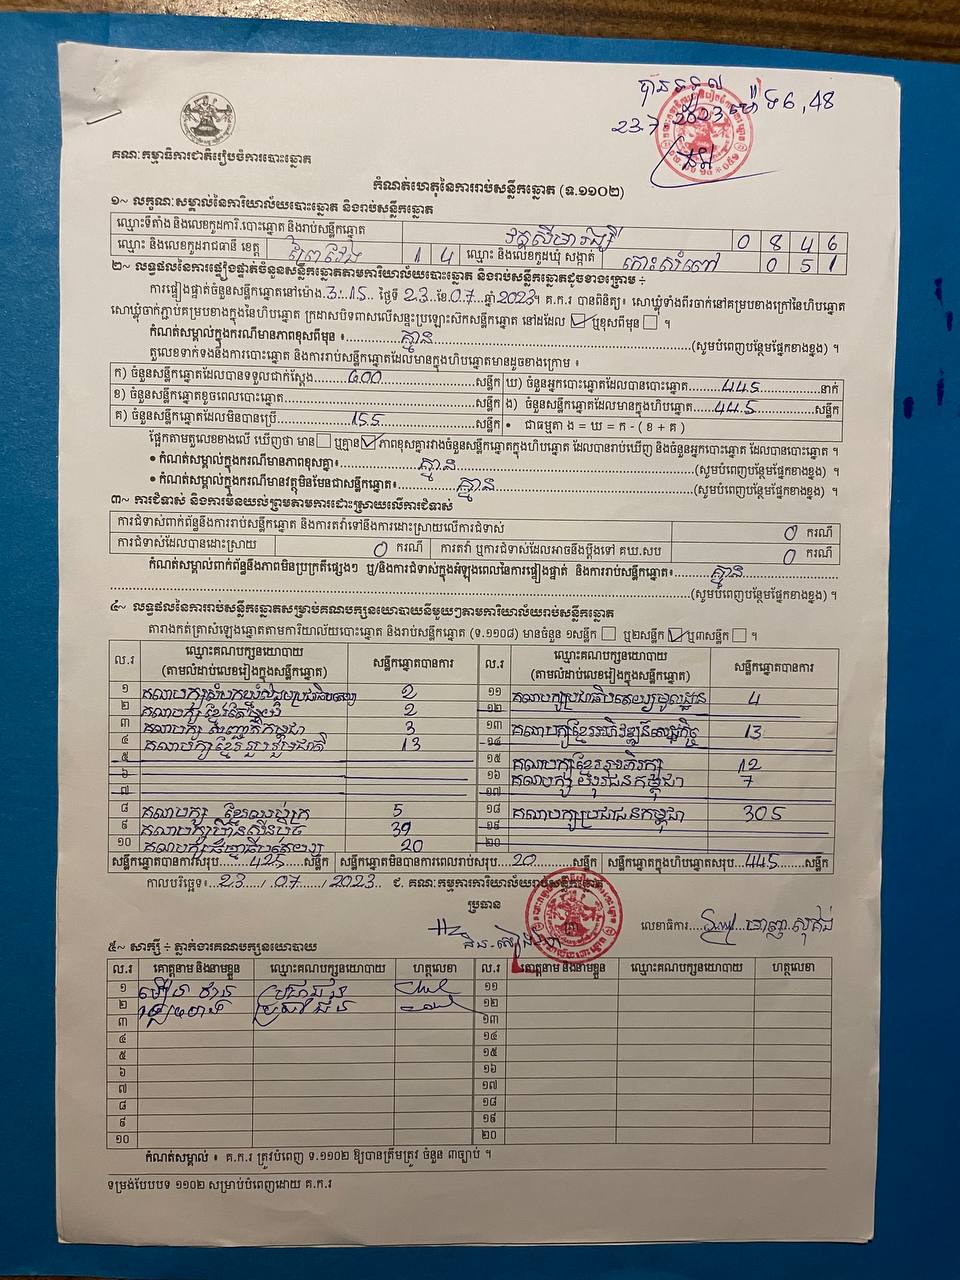 បានទទួល
23.7.2023 ម៉ោង 6,48
គណៈកម្មាធិការជាតិរៀបចំការបោះឆ្នោត
កំណត់ហេតុនៃការរាប់សន្លឹកឆ្នោត (ទ.១១០២)
១~ លក្ខណៈសម្គាល់នៃការិយាល័យបោះឆ្នោត និងរាប់សន្លឹកឆ្នោត
ឈ្មោះទីតាំង និងលេខកូដការិ.បោះឆ្នោត និងរាប់សន្លឹកឆ្នោត 0 8 4 6
ឈ្មោះ និងលេខកូដរាជធានី ខេត្ត ព្រៃវែង 1 4 ឈ្មោះ និងលេខកូដឃុំ សង្កាត់ កោះសំពៅ 0 5 1
២~ លទ្ធផលនៃការផ្ទៀងផ្ទាត់ចំនួនសន្លឹកឆ្នោតតាមការិយាល័យបោះឆ្នោត និងរាប់សន្លឹកឆ្នោតដូចខាងក្រោម ÷
ការផ្ទៀងផ្ទាត់ចំនួនសន្លឹកឆ្នោតនៅម៉ោង 3:15 ថ្ងៃទី 23 ខែ 07 ឆ្នាំ 2023 ។ គ.ក.រ បានពិនិត្យ៖ សោឃ្លុំទាំងពីរចាក់នៅគម្របខាងក្រៅនៃហិបឆ្នោត
សោឃ្លុំចាក់ភ្ជាប់គម្របខាងក្នុងនៃហិបឆ្នោត ក្រដាសបិទពាសលើសន្ទះប្រឡោះសិកសន្លឹកឆ្នោត នៅដដែល ☑ ឬខុសពីមុន ☐ ។
កំណត់សម្គាល់ក្នុងករណីមានភាពខុសពីមុន ៖ គ្មាន (សូមបំពេញបន្ថែមផ្នែកខាងខ្នង) ។
តួលេខទាក់ទងនឹងការបោះឆ្នោត និងការរាប់សន្លឹកឆ្នោតដែលមានក្នុងហិបឆ្នោតមានដូចខាងក្រោម ៖
ក) ចំនួនសន្លឹកឆ្នោតដែលបានទទួលជាក់ស្តែង 600 សន្លឹក ឃ) ចំនួនអ្នកបោះឆ្នោតដែលបានបោះឆ្នោត 445 នាក់
ខ) ចំនួនសន្លឹកឆ្នោតខូចពេលបោះឆ្នោត សន្លឹក ង) ចំនួនសន្លឹកឆ្នោតដែលមានក្នុងហិបឆ្នោត 445 សន្លឹក
គ) ចំនួនសន្លឹកឆ្នោតដែលមិនបានប្រើ 155 សន្លឹក • ជាធម្មតា ង = ឃ = ក - ( ខ + គ )
ផ្អែកតាមតួលេខខាងលើ ឃើញថា មាន ☐ ឬគ្មាន ☑ ភាពខុសគ្នារវាងចំនួនសន្លឹកឆ្នោតក្នុងហិបឆ្នោត ដែលបានរាប់ឃើញ និងចំនួនអ្នកបោះឆ្នោត ដែលបានបោះឆ្នោត ។
• កំណត់សម្គាល់ក្នុងករណីមានភាពខុសគ្នា៖ គ្មាន (សូមបំពេញបន្ថែមផ្នែកខាងខ្នង) ។
• កំណត់សម្គាល់ក្នុងករណីមានវត្ថុមិនមែនជាសន្លឹកឆ្នោត៖ គ្មាន (សូមបំពេញបន្ថែមផ្នែកខាងខ្នង) ។
៣~ ការជំទាស់ និងការមិនយល់ព្រមតាមការដោះស្រាយលើការជំទាស់
ការជំទាស់ពាក់ព័ន្ធនឹងការរាប់សន្លឹកឆ្នោត និងការតវ៉ាទៅនឹងការដោះស្រាយលើការជំទាស់ 0 ករណី
ការជំទាស់ដែលបានដោះស្រាយ 0 ករណី ការតវ៉ា ឬការជំទាស់ដែលអាចនឹងប្តឹងទៅ គឃ.សប 0 ករណី
កំណត់សម្គាល់ពាក់ព័ន្ធនឹងភាពមិនប្រក្រតីផ្សេងៗ ឬ/និងការជំទាស់ក្នុងអំឡុងពេលនៃការផ្ទៀងផ្ទាត់ និងការរាប់សន្លឹកឆ្នោត៖ គ្មាន
(សូមបំពេញបន្ថែមផ្នែកខាងខ្នង) ។
៤~ លទ្ធផលនៃការរាប់សន្លឹកឆ្នោតសម្រាប់គណបក្សនយោបាយនីមួយៗតាមការិយាល័យរាប់សន្លឹកឆ្នោត
តារាងកត់ត្រាសំឡេងឆ្នោតតាមការិយាល័យបោះឆ្នោត និងរាប់សន្លឹកឆ្នោត (ទ.១១០៨) មានចំនួន ១សន្លឹក ☐ ឬ២សន្លឹក ☑ ឬ៣សន្លឹក ☐ ។
ល.រ ឈ្មោះគណបក្សនយោបាយ (តាមលំដាប់លេខរៀងក្នុងសន្លឹកឆ្នោត) សន្លឹកឆ្នោតបានការ ល.រ ឈ្មោះគណបក្សនយោបាយ (តាមលំដាប់លេខរៀងក្នុងសន្លឹកឆ្នោត) សន្លឹកឆ្នោតបានការ
១ គណបក្សសំបុកឃ្មុំសង្គមប្រជាធិបតេយ្យ 2 ១១ គណបក្សប្រជាធិបតេយ្យមូលដ្ឋាន 4
២ គណបក្ស ខ្មែរតែមួយ 2 ១២
៣ គណបក្ស សញ្ជាតិកម្ពុជា 3 ១៣ គណបក្សខ្មែរអភិវឌ្ឍន៍សេដ្ឋកិច្ច 13
៤ គណបក្សខ្មែររួបរួមជាតិ 13 ១៤
៥ ១៥ គណបក្សខ្មែរអភិរក្ស 12
៦ ១៦ គណបក្ស យុវជនកម្ពុជា 7
៧ ១៧
៨ គណបក្ស ខ្មែរឈប់ក្រ 5 ១៨ គណបក្សប្រជាជនកម្ពុជា 305
៩ គណបក្សហ្វ៊ុនស៊ិនប៉ិច 39 ១៩
១០ គណបក្សធម្មាធិបតេយ្យ 20 ២០
សន្លឹកឆ្នោតបានការសរុប 425 សន្លឹក សន្លឹកឆ្នោតមិនបានការពេលរាប់សរុប 20 សន្លឹក សន្លឹកឆ្នោតក្នុងហិបឆ្នោតសរុប 445 សន្លឹក
កាលបរិច្ឆេទ៖ 23 / 07 / 2023 ជ. គណៈកម្មការការិយាល័យរាប់សន្លឹកឆ្នោត
ប្រធាន
លេខាធិការ
៥~ សាក្សី ÷ ភ្នាក់ងារគណបក្សនយោបាយ
ល.រ គោត្តនាម និងនាមខ្លួន ឈ្មោះគណបក្សនយោបាយ ហត្ថលេខា ល.រ គោត្តនាម និងនាមខ្លួន ឈ្មោះគណបក្សនយោបាយ ហត្ថលេខា
១ ប្រជាជន ១១
២ ប្រជាជន ១២
៣ ១៣
៤ ១៤
៥ ១៥
៦ ១៦
៧ ១៧
៨ ១៨
៩ ១៩
១០ ២០
កំណត់សម្គាល់ ៖ គ.ក.រ ត្រូវបំពេញ ទ.១១០២ ឱ្យបានត្រឹមត្រូវ ចំនួន ៣ច្បាប់ ។
ទម្រង់បែបបទ ១១០២ សម្រាប់បំពេញដោយ គ.ក.រ